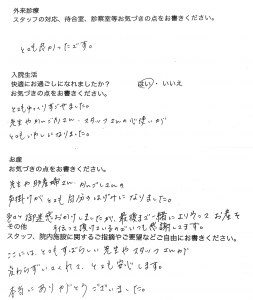 外来診療
スタッフの対応、待合室、診察室等お気づきの点をお書きください。
とても良かったです。
入院生活
快適にお過ごしになれましたか? はい・いいえ
お気づきの点をお書きください。
とてもゆっくりすごせました。
先生やかんごふさん・スタッフさんの心使いが
とてもうれしくなりました。
お産
お気づきの点をお書きください。
先生や助産婦さん・かんごしさんの
声掛けがとても自分のはげみになりました。
御迷惑おかけしましたが、最後まで一緒によりそってお産を
手伝って頂けるのでいつも感謝してます。
その他
スタッフ、院内施設に関するご指摘やご要望などご自由にお書きください。
ここには、とてもすばらしい先生やスタッフさんが
変わらずいてくれて、とても安心します。
本当にありがとうございました。